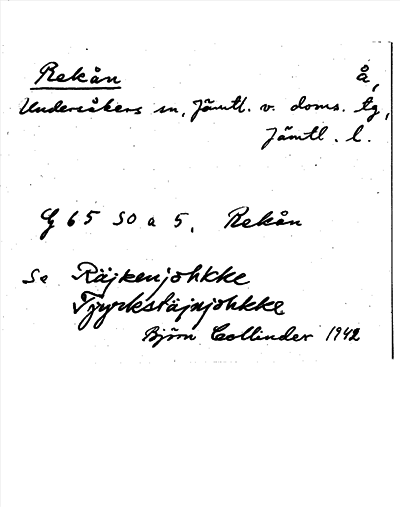 Rekån å,
Undersåkers sn, Jämtl. v. doms. tg,
Jämtl. l.
G 65 SO a 5. Rekån
Se Räjkenjohkke
Tjyrkstäjnjohkke
Björn Collinder 1942